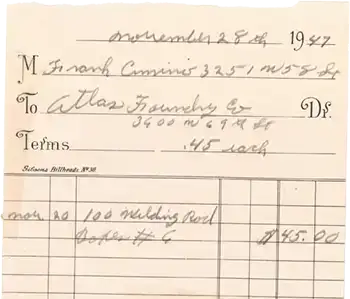 november 28th 1947
M Frank Cimino 3251 W 58 St
To Atlas Foundry Co Dr.
3600 W 69th St
Terms .45 each
Sisfoons Billheads No 30
nov. 20 100 Welding Rod
# 6 $ 45.00